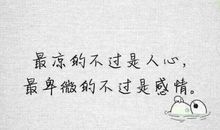 最凉的不过是人心,
最卑微的不过是感情。